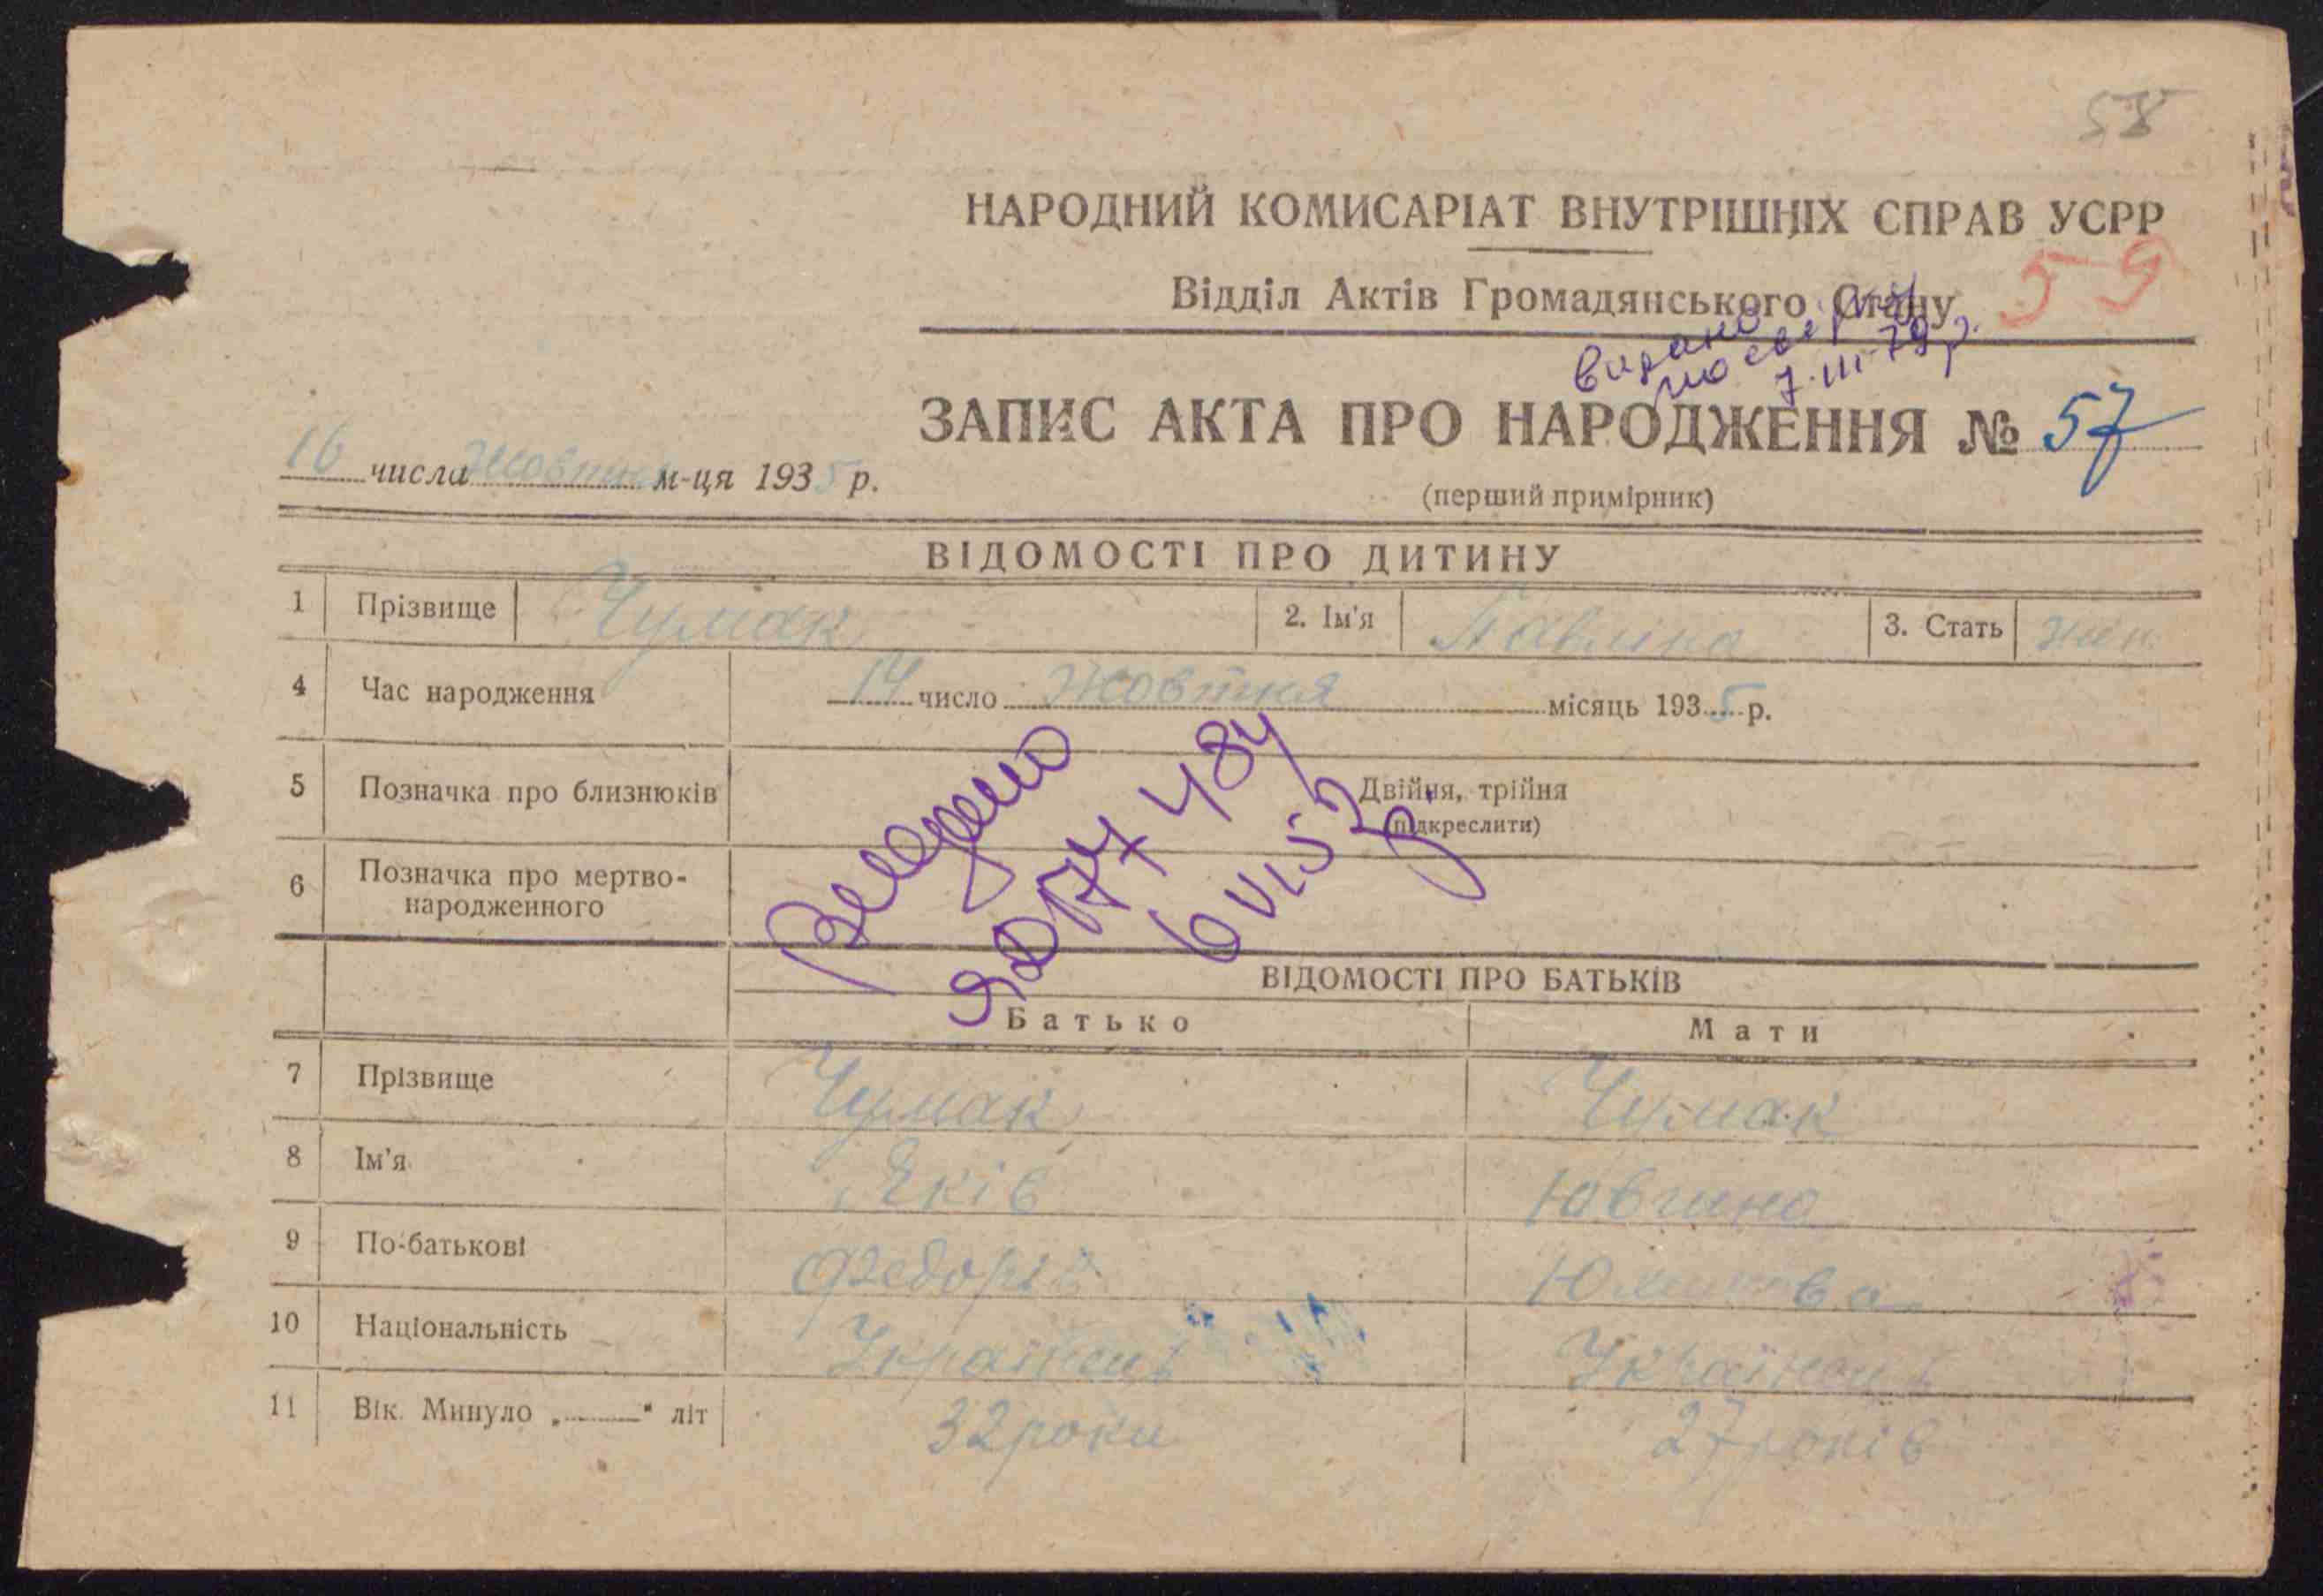 58
НАРОДНИЙ КОМИСАРІАТ ВНУТРІШНІХ СПРАВ УСРР
59
Відділ Актів Громадянського Стану
видано
7.III-79р.
ЗАПИС АКТА ПРО НАРОДЖЕННЯ № 57
16 числа Жовтня м-ця 1935 р.
(перший примірник)
ВІДОМОСТІ ПРО ДИТИНУ
1 Прізвище Чумак 2. Ім'я Павлина 3. Стать жін
4 Час народження 14 число Жовтня місяць 1935 р.
5 Позначка про близнюків Двійня, трійня
(підкреслити)
6 Позначка про мертво-
народженного
ВІДОМОСТІ ПРО БАТЬКІВ
Батько Мати
7 Прізвище Чумак Чумак
8 Ім'я Яків Ювгина
9 По-батькові Федорів
10 Національність Українець Українець
11 Вік. Минуло „ " літ 32 роки 27 років